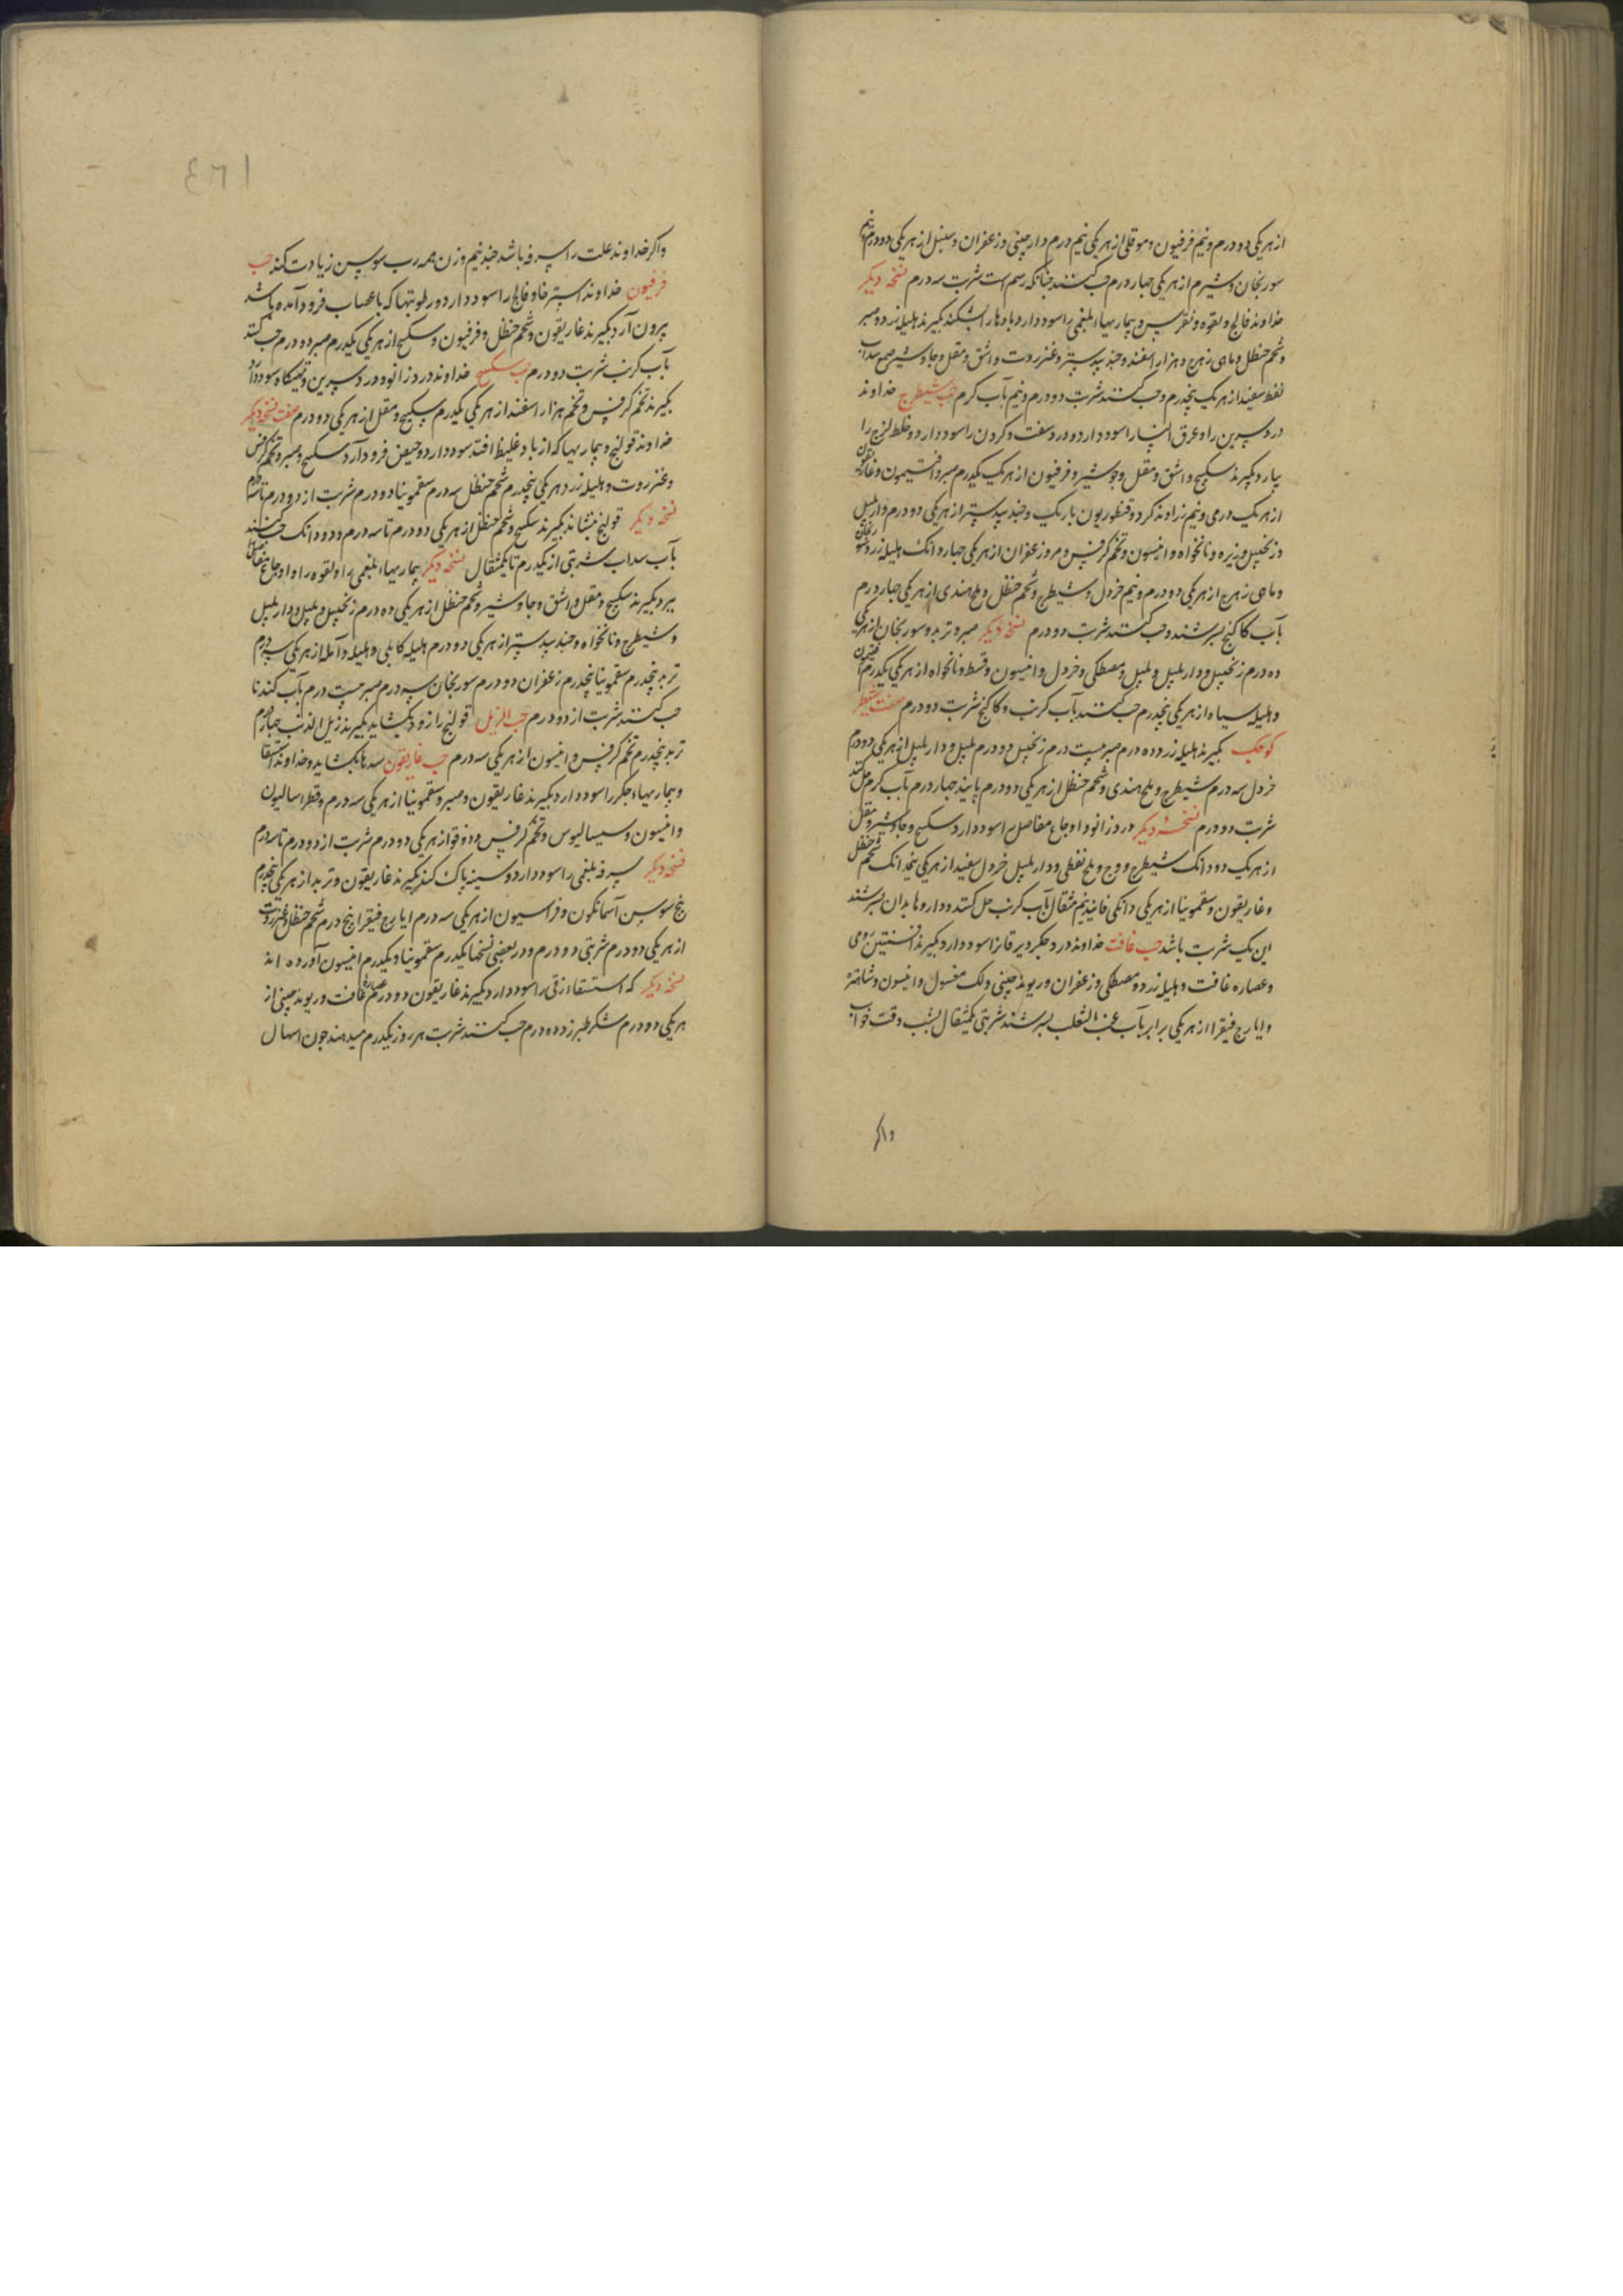 از هر یکی دو درم و نیم فرفیون و موقلی از هر یکی نیم درم دارچینی و زعفران و سنبل از هر یکی دو درم و نیم
سورنجان و شیرم از هر یکی چهار درم حب کنند چنانکه رسم است شربت سه درم نسخه دیکر
خداوند فالج و لقوه و نقرس و بیماریهاء بلغمی را سود دارد و بادها را بشکند بکیرند هلیله زرد و صبر
و شحم حنظل و ماهی زهرج و هزار اسفند و جندبیدستر و عنزروت و اشق و مقل و جاوشیر صمغ سداب
نفط سفید از هر یک پنجدرم و حب کنند شربت دو درم و نیم بآب کرم حب شیطرج خداوند
درد سرین را و عرق النسا را سود دارد و درد سفت و کردن را سود دارد و خلط لزج را
بیارد بکیرند سکبینج و اشق و مقل و جوشیر و فرفیون از هر یک یکدرم صبر و افتیمون و غاریقون
از هر یک درمی و نیم زراوند کرد و قنطوریون باریک و جندبیدستر از هر یکی دو درم دارپلپل
و زنجبیل و زیره و نانخواه و انیسون و تخم کرفس و مر و زعفران از هر یکی چهار دانک هلیله زرد و سورنجان
و ماهی زهرج از هر یکی دو درم و نیم خردل و شیطرج و شحم حنظل و ملح هندی از هر یکی چهار درم
بآب کاکنج بسرشند و حب کنند شربت دو درم نسخه دیکر صبر و تربد و سورنجان از هر یکی
ده درم زنجبیل و دارپلپل و پلپل و مصطکی و خردل و انیسون و قسط و نانخواه از هر یکی یکدرم افتیمون
و هلیله سیاه از هر یکی پنجدرم حب کنند بآب کرنب و کاکنج شربت دو درم صفت شیطرج
کوچک بکیرند هلیله زرد ده درم صبر بیست درم زنجبیل دو درم پلپل و دارپلپل از هر یکی دو درم
خردل سه درم شیطرج و ملح هندی و شحم حنظل از هر یکی دو درم پانیذ چهار درم بآب کرم حل کنند
شربت دو درم نسخه دیکر درد زانو و اوجاع مفاصل را سود دارد سکبینج و جاوشیر و مقل
از هر یک دو دانک شیطرج و وج و ملح نفطی و دارپلپل خردل سفید از هر یکی نیمدانک شحم حنظل
و غاریقون و سقمونیا از هر یکی دانکی فانیذ نیم مثقال بآب کرنب حل کنند و داروها بدان بسرشند
این یک شربت باشد حب غافت خداوند درد جکر و یرقان را سود دارد بکیرند افسنتین رومی
و عصاره غافت و هلیله زرد و مصطکی و زعفران و ریوند چینی و لک مغسول و انیسون و شاهتره
و ایارج فیقرا از هر یکی برابر بآب عنب الثعلب بسرشند شربتی یکمثقال بشب وقت خواب
واکر
٤٦١
واکر خداوند علت را سرفه باشد چند نیم وزن همه رب سوسن زیادت کند حب
فرفیون خداوند استرخا و فالج را سود دارد و رطوبتها که باعصاب فرود آمده باشد
بیرون آرد بکیرند غاریقون و شحم حنظل و فرفیون و سکبینج از هر یکی یکدرم صبر دو درم حب کنند
بآب کرنب شربت دو درم حب سکبینج خداوند درد زانو و درد سرین و تهیکاه سود دارد
بکیرند تخم کرفس و تخم هزار اسفند از هر یکی یکدرم سکبینج و مقل از هر یکی دو درم صفت نسخه دیکر
خداوند قولنج و بیماریها که از باد غلیظ افتد سود دارد و حیض فرود آرد سکبینج و صبر و تخم کرفس
و عنزروت و هلیله زرد هر یکی پنجدرم شحم حنظل سه درم سقمونیا دو درم شربت از دو درم تا سه درم
نسخه دیکر قولنج بنشاند بکیرند سکبینج و شحم حنظل از هر یکی دو درم تا سه درم و دو دانک حب کنند
بآب سداب شربتی از یکدرم تا یکمثقال نسخه دیکر بیماریهاء بلغمی را و لقوه را و اوجاع مفاصل
ببرد بکیرند سکبینج و مقل و اشق و جاوشیر و شحم حنظل از هر یکی ده درم زنجبیل و پلپل و دارپلپل
و شیطرج و نانخواه و جندبیدستر از هر یکی دو درم هلیله کابلی و هلیله و آمله از هر یکی سه درم
تربد پنجدرم سقمونیا پنجدرم زعفران دو درم سورنجان سه درم صبر بیست درم بآب کندنا
حب کنند شربت از دو درم حب الزبل قولنج را زود بکشاید بکیرند زبل الذئب چهار درم
تربد پنجدرم تخم کرفس و انیسون از هر یکی سه درم حب غاریقون سدها بکشاید و خداوند استسقا
و بیماریهاء جکر را سود دارد بکیرند غاریقون و صبر و سقمونیا از هر یکی سه درم و قطراسالیون
و انیسون و سیسالیوس و تخم کرفس و دوقو از هر یکی دو درم شربت از دو درم تا سه درم
نسخه دیکر سرفه بلغمی را سود دارد و سینه پاک کند بکیرند غاریقون و تربد از هر یکی پنجدرم
بیخ سوسن آسمانکون و فراسیون از هر یکی سه درم ایارج فیقرا پنج درم شحم حنظل و عنزروت
از هر یکی دو درم شربتی دو درم و در بعضی نسخها یکدرم سقمونیا و یکدرم انیسون آورده اند
نسخه دیکر که استسقاء زقی را سود دارد بکیرند غاریقون دو درم عصاره غافت و ریوند چینی از
هر یکی دو درم شکر طبرزد ده درم حب کنند شربت هر روز یکدرم میدهند جون اسهال